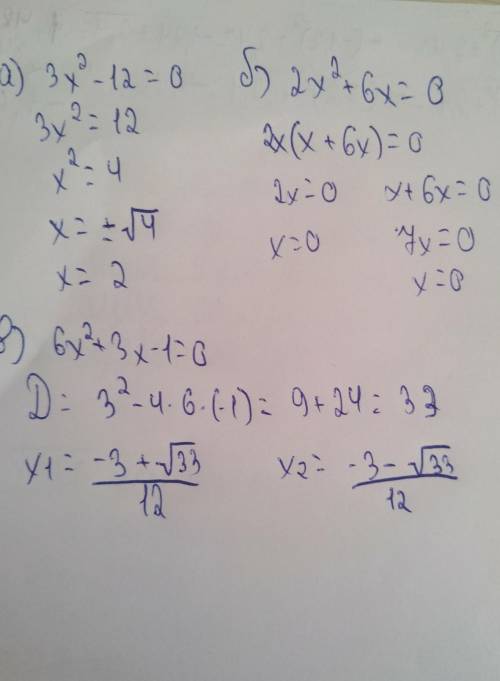 а) 3x² - 12 = 0
3x² = 12
x² = 4
x = ±√4
x = 2
б) 2x² + 6x = 0
2x(x + 6x) = 0
2x = 0 x + 6x = 0
x = 0 7x = 0
x = 0
в) 6x² + 3x - 1 = 0
D = 3² - 4 · 6 · (-1) = 9 + 24 = 33
x1 = (-3 + √33)/12 x2 = (-3 - √33)/12